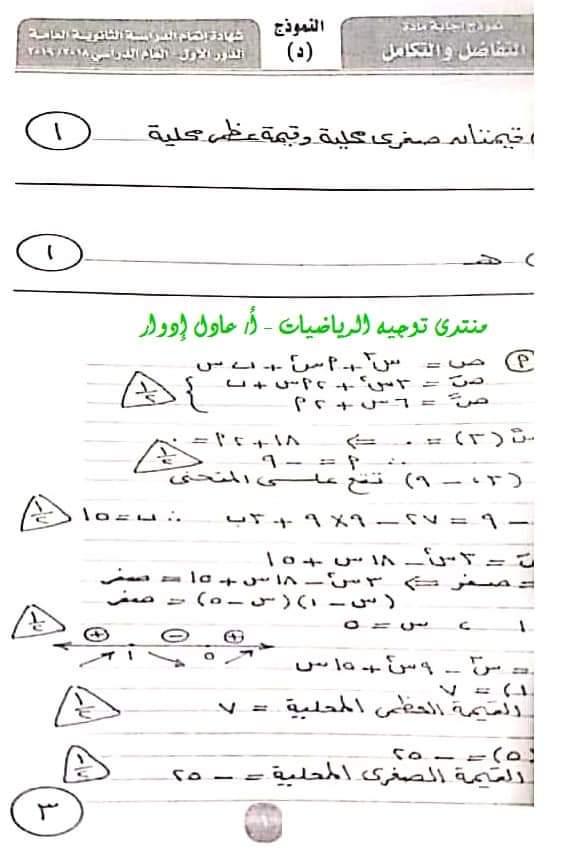 نموذج إجابة مادة
التفاضل والتكامل
النموذج
(د)
شهادة إتمام الدراسة الثانوية العامة
الدور الأول - العام الدراسي ٢٠١٨/٢٠١٩
) قيمتان صغرى محلية وقيمة عظمى محلية ١
) هـ ١
منتدى توجيه الرياضيات - أ/ عادل إدوار
(٩) ص = س٣ + ٩ س٢ + ب س
صَ = ٣ س٢ + ٢٩ س + ب
صً = ٦ س + ٢٩ ١/٢
(٣) = ٠ ⇐ ١٨ + ٢٩ = ٠
∴ ٩ = - ٩ ١/٢
(٣، - ٩) تقع على المنحنى
- ٩ = ٢٧ - ٩ × ٩ + ٣ ب ∴ ب = ١٥ ١/٢
= ٣ س٢ - ١٨ س + ١٥
= صفر ⇐ ٣ س٢ - ١٨ س + ١٥ = صفر
(س - ١) (س - ٥) = صفر
١ ، س = ٥ ١/٢
+ - +
١ ٥
= س٣ - ٩ س٢ + ١٥ س
١) = ٧
القيمة العظمى المحلية = ٧ ١/٢
(٥) = - ٢٥
القيمة الصغرى المحلية = - ٢٥ ١/٢
٣